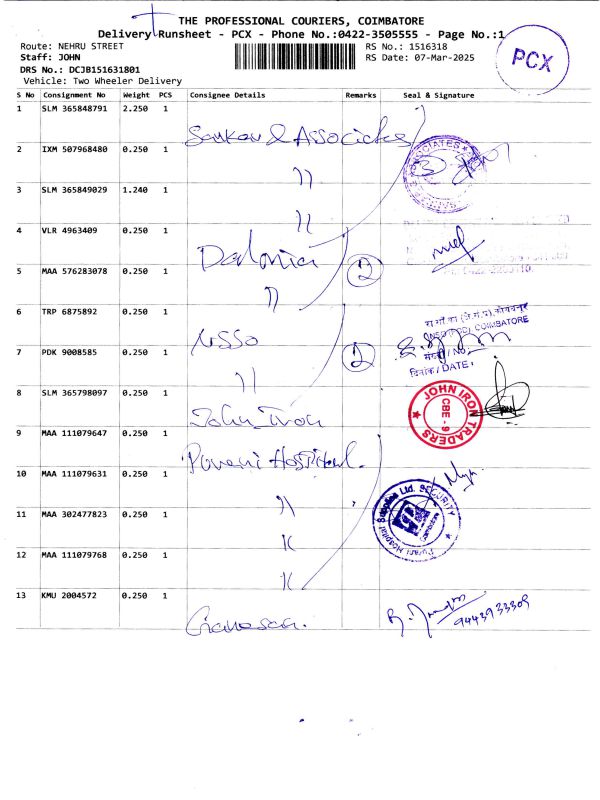 THE PROFESSIONAL COURIERS, COIMBATORE
Delivery Runsheet - PCX - Phone No.:0422-3505555 - Page No.:1
Route: NEHRU STREET
RS No.: 1516318
Staff: JOHN
RS Date: 07-Mar-2025
DRS No.: DCJB151631801
Vehicle: Two Wheeler Delivery
PCX
S No Consignment No Weight PCS Consignee Details Remarks Seal & Signature
1 SLM 365848791 2.250 1
Sankar & Associates
2 IXM 507968480 0.250 1 "
3 SLM 365849029 1.240 1 "
4 VLR 4963409 0.250 1
5 MAA 576283078 0.250 1 " 2
6 TRP 6875892 0.250 1 NSSO
COIMBATORE
7 PDK 9008585 0.250 1 " 2
संख्या / No.
दिनांक / DATE :
8 SLM 365798097 0.250 1 John Iron
JOHN IRON TRADERS
CBE - 9
9 MAA 111079647 0.250 1 Purani Hospital.
10 MAA 111079631 0.250 1 "
Purani Hospital Supplies Ltd. SECURITY
11 MAA 302477823 0.250 1 "
12 MAA 111079768 0.250 1 "
13 KMU 2004572 0.250 1 Ganesan.
9443933309